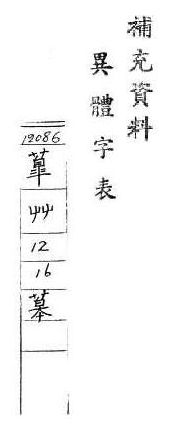 補充資料
異體字表
12086
艸
12
16